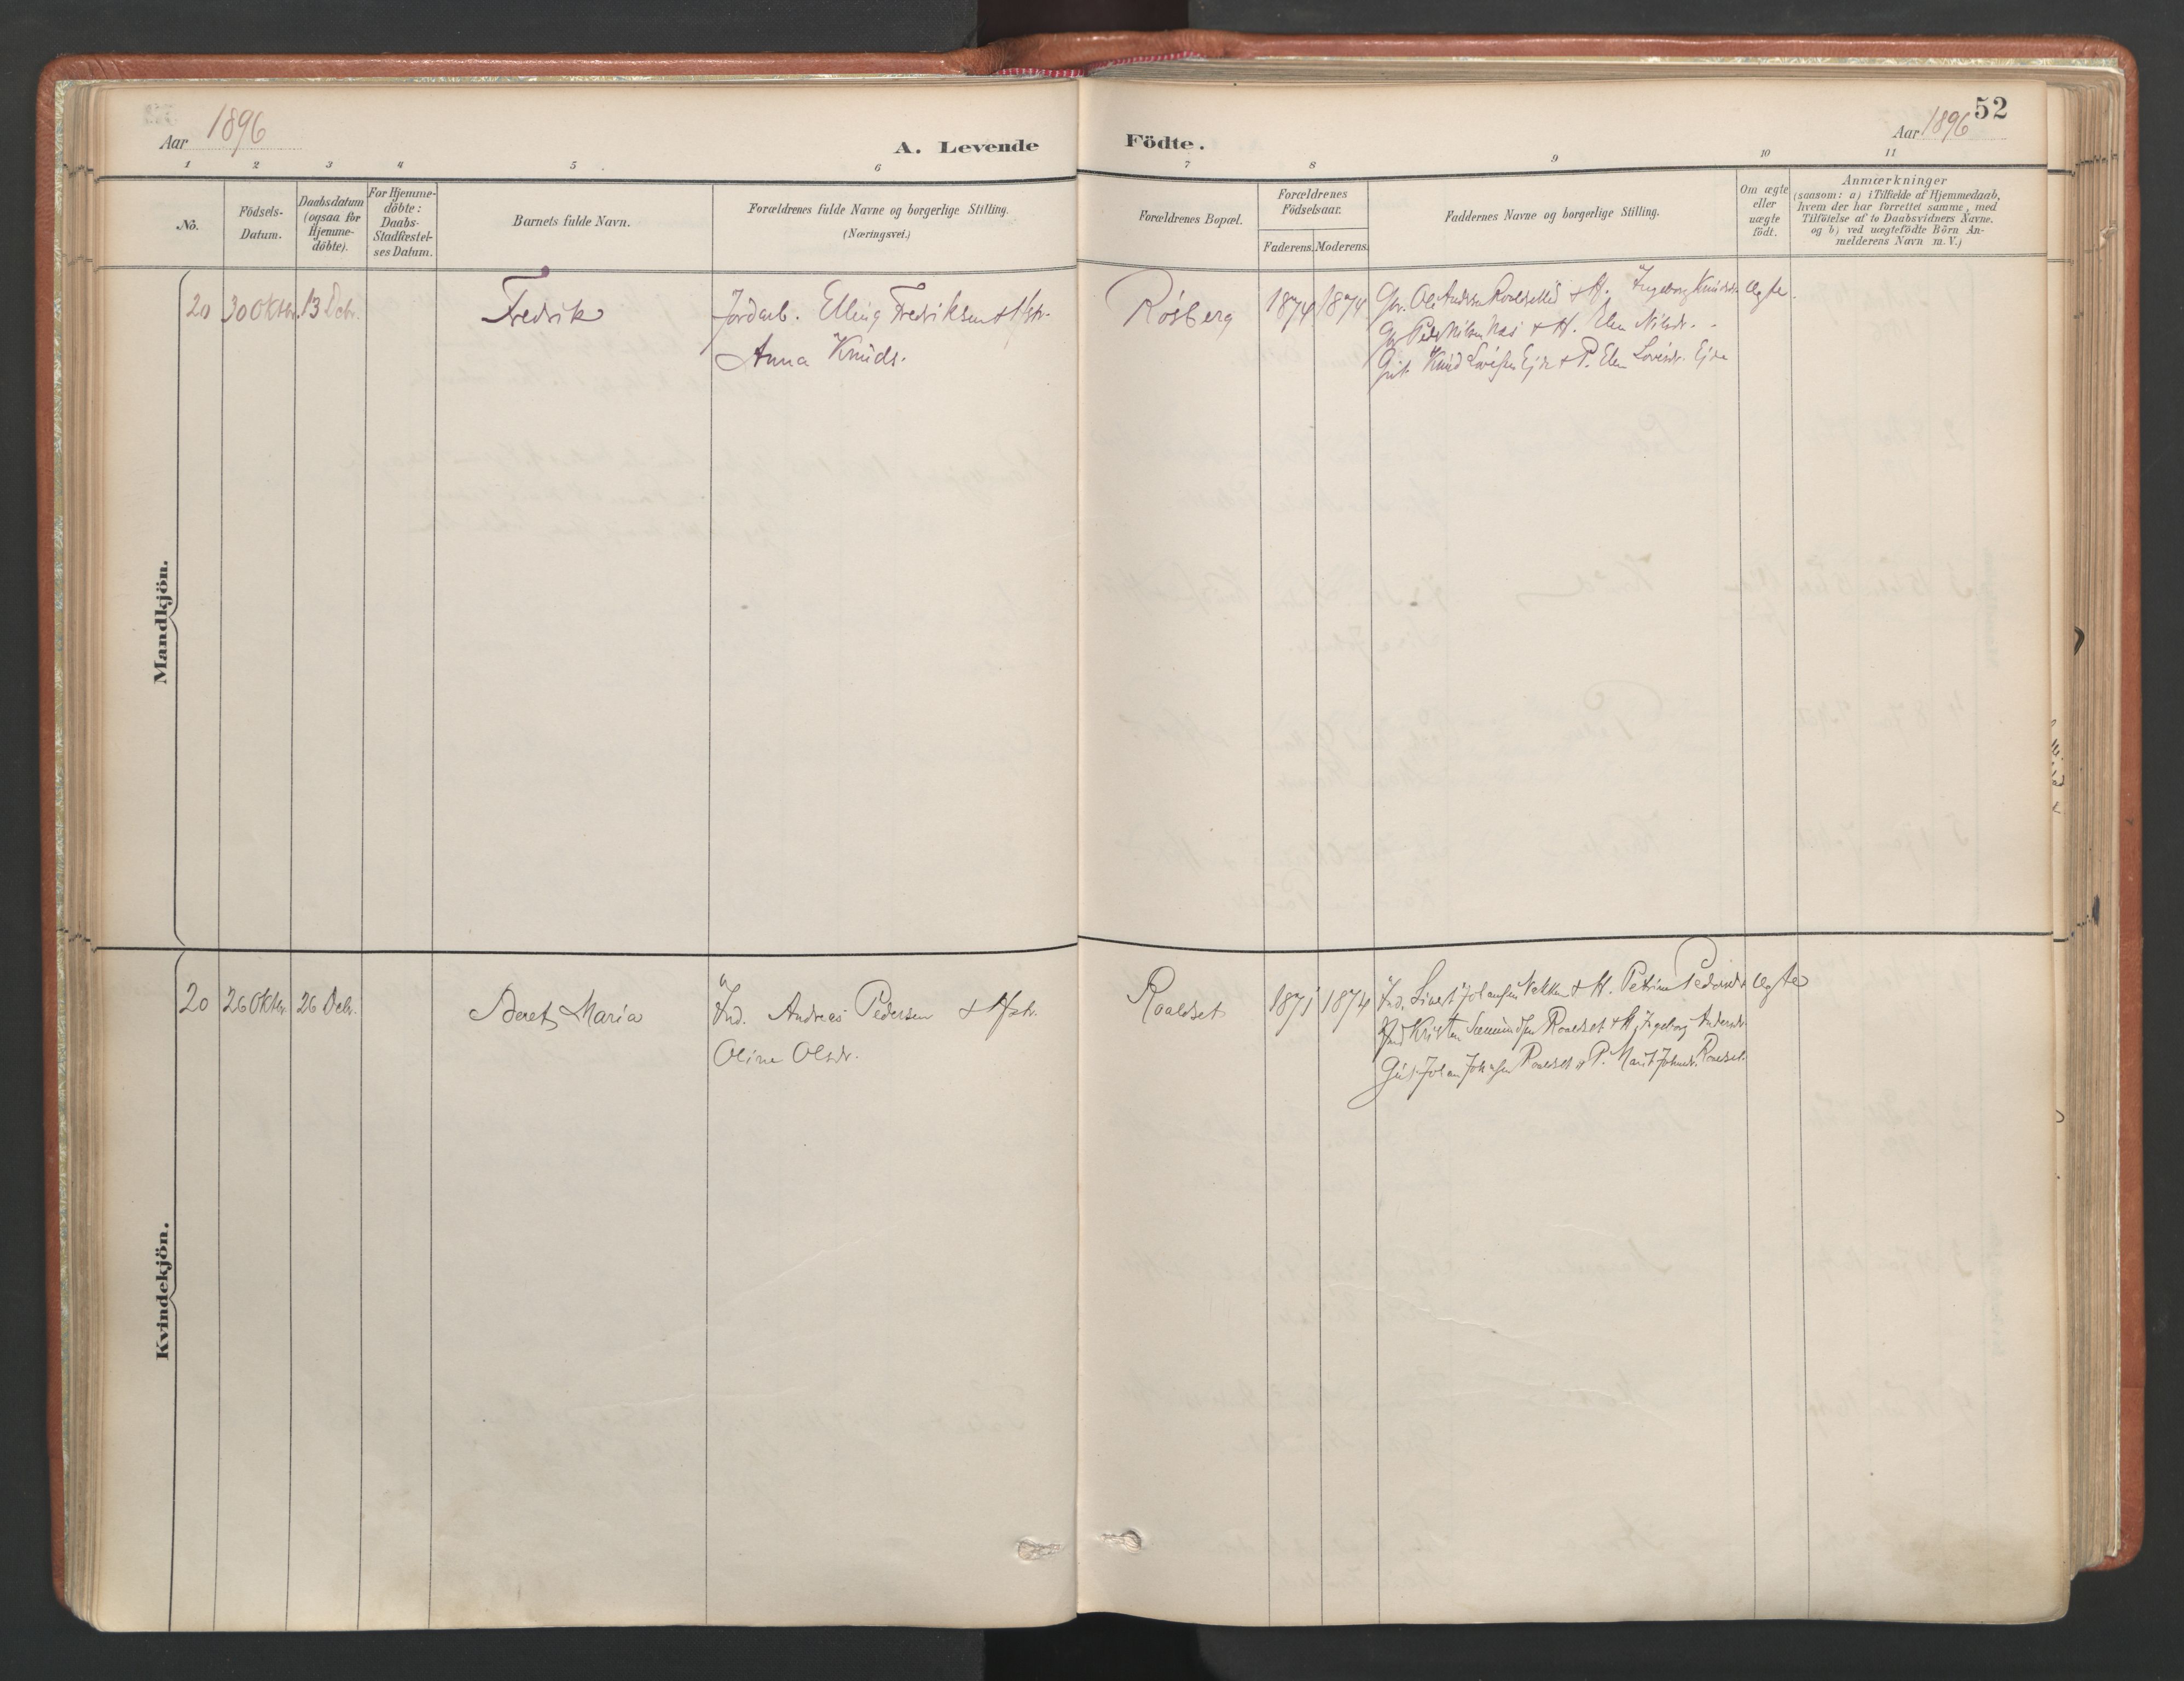 Aar 1896
A. Levende
Födte.
Aar 1896
52
1 2 3 4 5 6 7 8 9 10 11
No.
Födsels-
Datum.
Daabsdatum
(ogsaa for
Hjemme-
döbte).
For Hjemme-
döbte:
Daabs-
Stadfæstel-
ses Datum.
Barnets fulde Navn.
Forældrenes fulde Navne og borgerlige Stilling.
(Næringsvei.)
Forældrenes Bopæl.
Forældrenes
Födselsaar.
Faderens. Moderens.
Faddernes Navne og borgerlige Stilling.
Om ægte
eller
uægte
födt.
Anmærkninger
(saasom: a) i Tilfælde af Hjemmedaab,
hvem der har forrettet samme, med
Tilföielse af to Daabsvidners Navne.
og b) ved uægtefödte Börn An-
melderens Navn m. V.)
Mandkjön.
20 30 Oktbr. 13 Debr. Fredrik
Jordarb. Elling Fredriksen & Hstr.
Anna Knuds.
Rösberg 1874 1874
Gbr. Ole Andersen & H. Ingeborg Knudsdr.
Peder Nilsen Næs & H. Elen Nilsdr.
Gut Knud & P. Elen
ægte.
Kvindekjön.
20 26 Oktbr. 26 Debr. Beret Maria
Ind. Andreas Pedersen & Hstr.
Oline Olsdr.
Roaldset 1871 1874
Ind. Sivert Johansen & H. Petrine Pedersdr.
Ind Kristen Roaldset & H. Ingeborg Andersdr.
Gut Johan Roaldset & P. Marit Johnsdr. Roaldset.
ægte